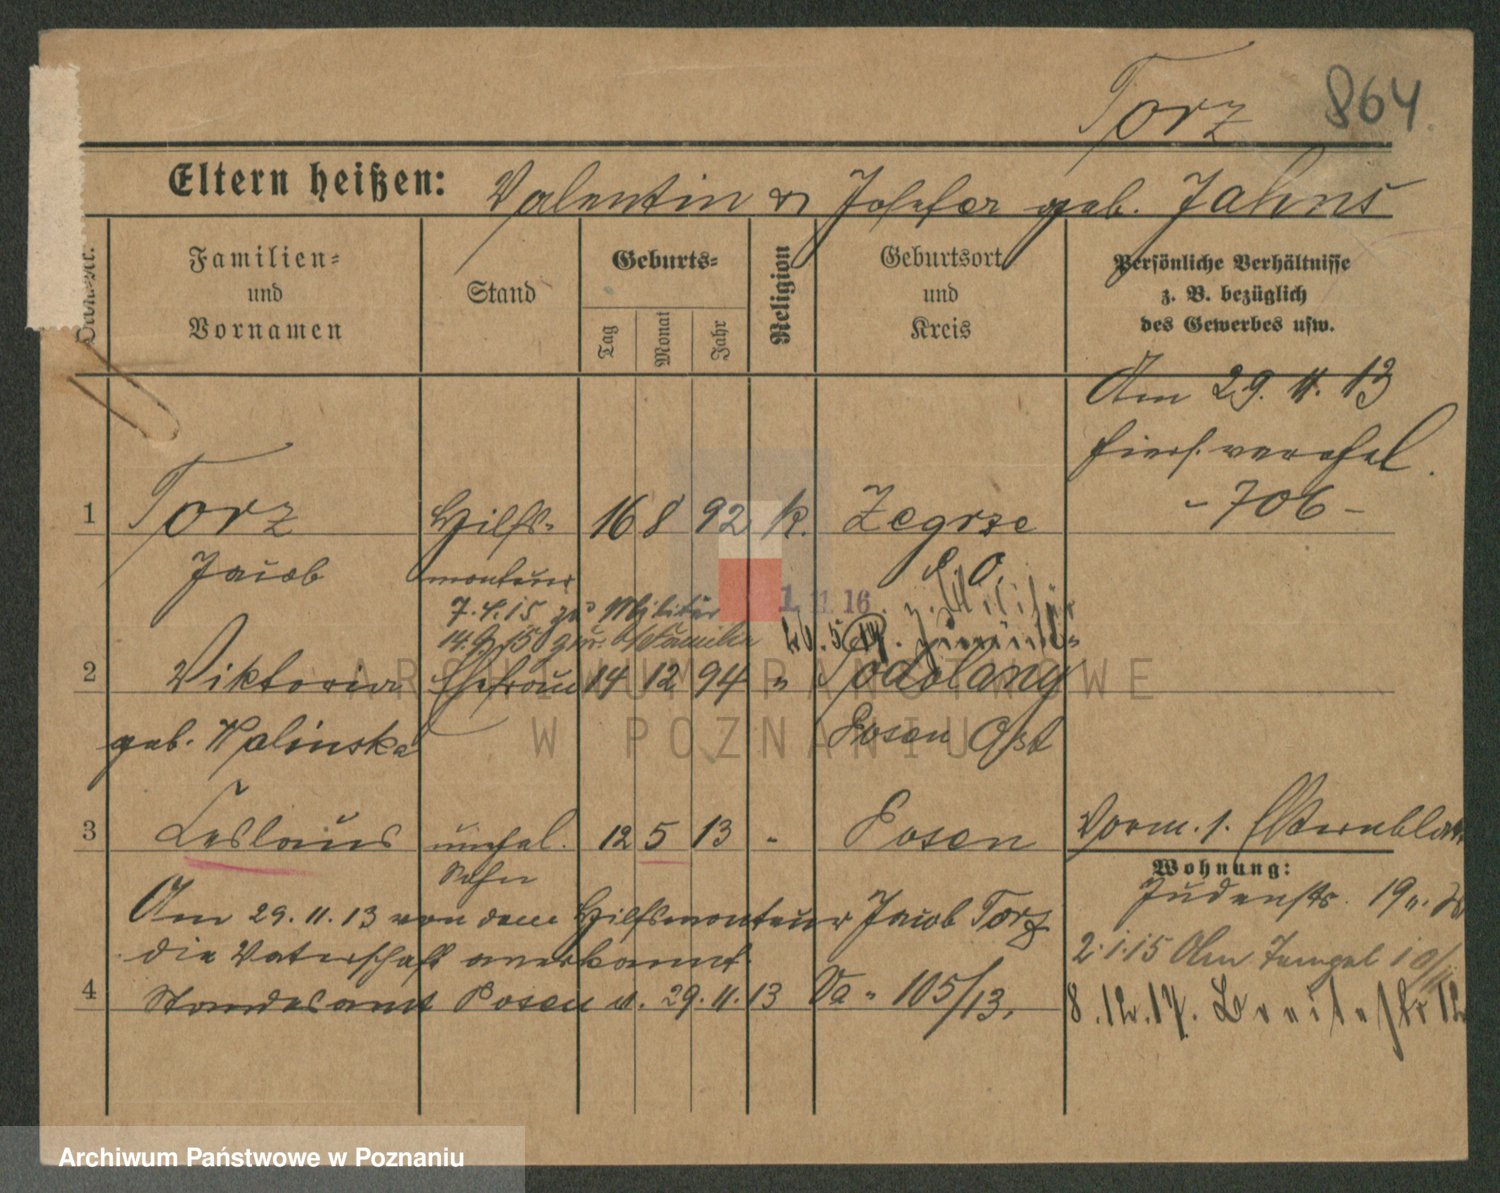 Torz 864
Eltern heißen: Valentin u Josefa geb. Jahns
Familien-
und
Vornamen
Stand
Geburts-
Tag
Monat
Jahr
Religion
Geburtsort
und
Kreis
Persönliche Verhältnisse
z. B. bezüglich
des Gewerbes usw.
Am 29. 11. 13
- 706 -
1 Torz Hilfs- 16 8 92 k. Zegrze
Jacob monteur P. O.
7.4.15 zu Militär 1. 11. 16. z. Militär
14.9.15 zur Familie
2 Viktoria Ehefrau 14 12 94 " Podolany
geb. Walinska Posen Ost
3 Ceslaus unehel. 12 5 13 " Posen
Sohn
Vorm. 1.
Wohnung:
Judenstr. 19
Am 29. 11. 13 von dem Hilfsmonteur Jacob Torz
die Vaterschaft anerkannt
2.1.15 Am Tempel 10
4 Standesamt Posen v. 29. 11. 13 Va " 105/13.
8.12.17. Breitestr 12
ARCHIWUM PAŃSTWOWE
W POZNANIU
Archiwum Państwowe w Poznaniu